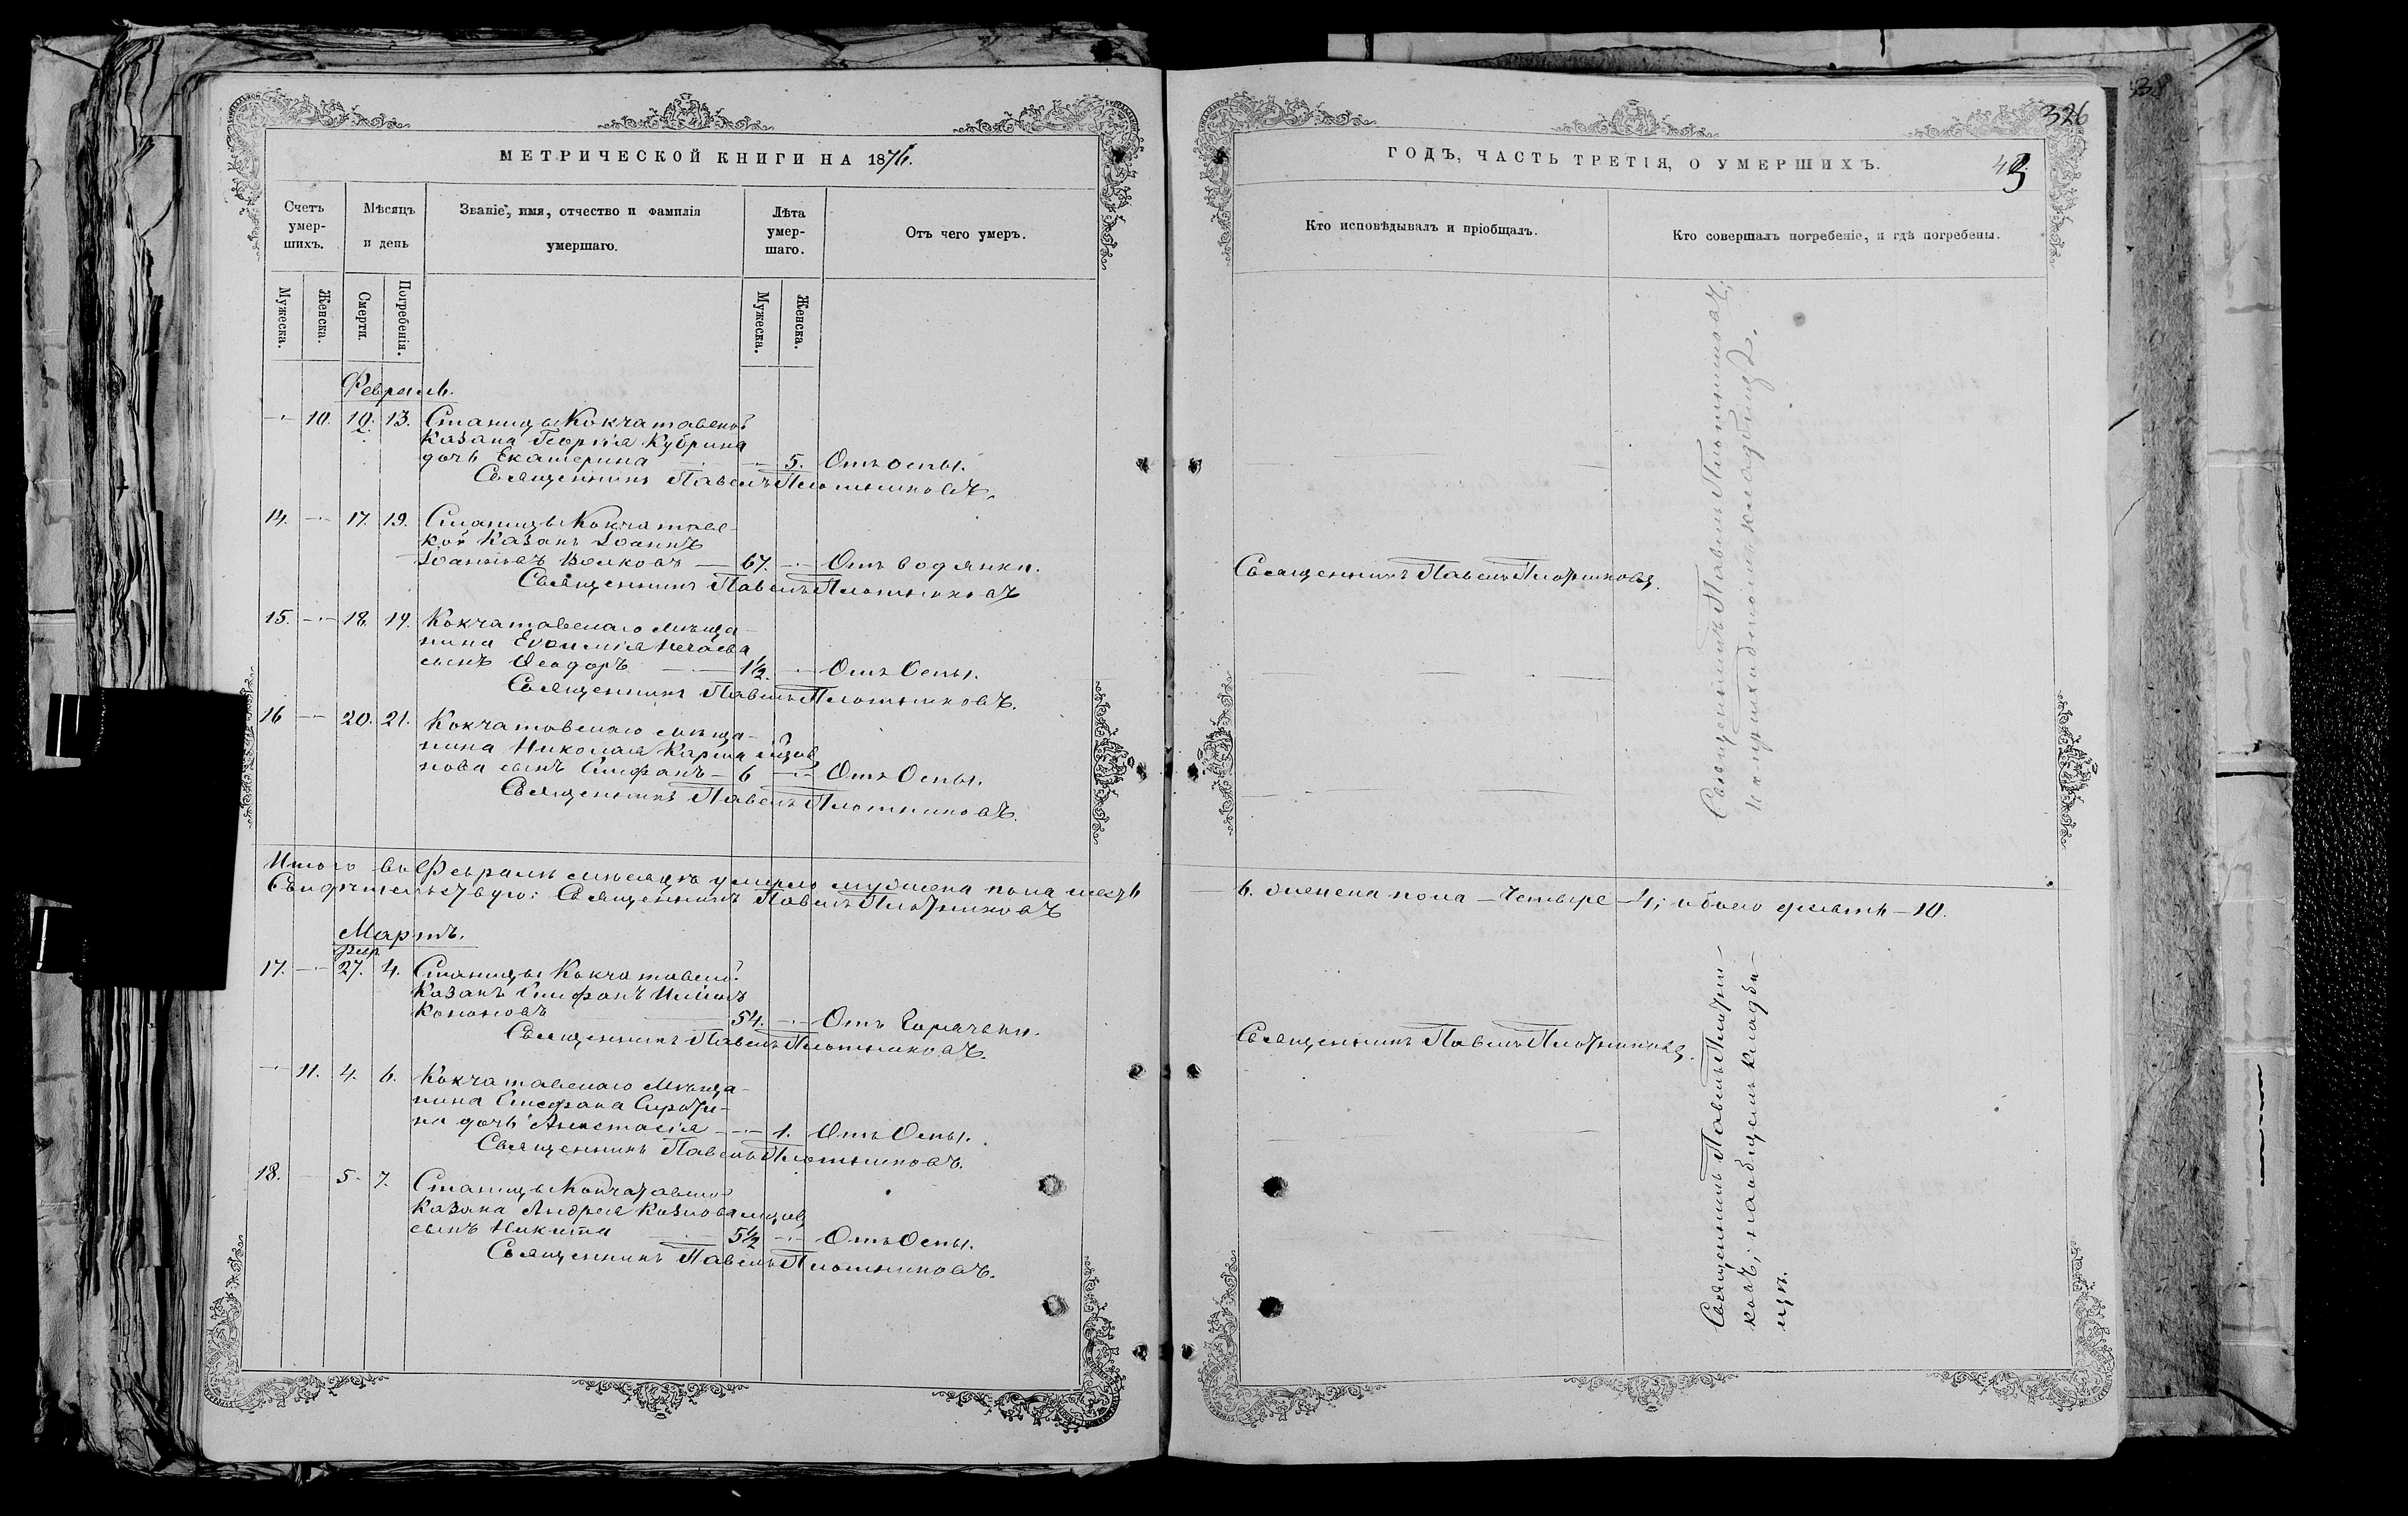 МЕТРИЧЕСКОЙ КНИГИ НА 1876.
Счетъ умер-шихъ.
Мѣсяцъ и день
Званіе, имя, отчество и фамилія умершаго.
Лѣта умер-шаго.
Отъ чего умеръ.
Мужеска.
Женска.
Смерти.
Погребенія.
Мужеска.
Женска.
Февраль.
10. 10. 13. Станицы Кокчатавской
казака Георгія Кубрина
дочь Екатерина 5. Отъ оспы.
Священникъ Павелъ Плотниковъ.
14. 17. 19. Станицы Кокчатавс-
кой Казакъ Іоаннъ
Іоанновъ Волковъ 67. Отъ водянки.
Священникъ Павелъ Плотниковъ
15. 18. 19. Кокчатавскаго мѣща-
нина Евѳимія Нечаева
сынъ Ѳеодоръ 1½. Отъ Оспы.
Священникъ Павелъ Плотниковъ.
16 20. 21. Кокчатавскаго мѣща-
нина Николая
сынъ Стефанъ 6 Отъ Оспы.
Священникъ Павелъ Плотниковъ.
Итого въ Февралѣ мѣсяцѣ умерло мужеска пола шесть
Свидѣтельствую: Священникъ Павелъ Плотниковъ
Мартъ.
Фев
17. 27. 4. Станицы Кокчатавской
Казакъ Стефанъ
Кононовъ 54. Отъ Горячки.
Священникъ Павелъ Плотниковъ.
11. 4. 6. Кокчатавскаго Мѣща-
нина Стефана Сироти-
на дочь Анастасія 1. Отъ Оспы.
Священникъ Павелъ Плотниковъ.
18. 5. 7. Станицы Кокчатавской
казака Андрея Козлова
сынъ Никита 5½ Отъ Оспы.
Священникъ Павелъ Плотниковъ.
38
326
ГОДЪ, ЧАСТЬ ТРЕТІЯ, О УМЕРШИХЪ.
Кто исповѣдывалъ и пріобщалъ.
Кто совершалъ погребеніе, и гдѣ погребены.
Священникъ Павелъ Плотниковъ.
Священникъ Павелъ Плотниковъ,
на приходскомъ кладбищѣ.
6. женска пола – Четыре – 4; обоего десять – 10.
Священникъ Павелъ Плотниковъ.
Священникъ Павелъ Плотни-
ковъ; на общемъ кладби-
щѣ.